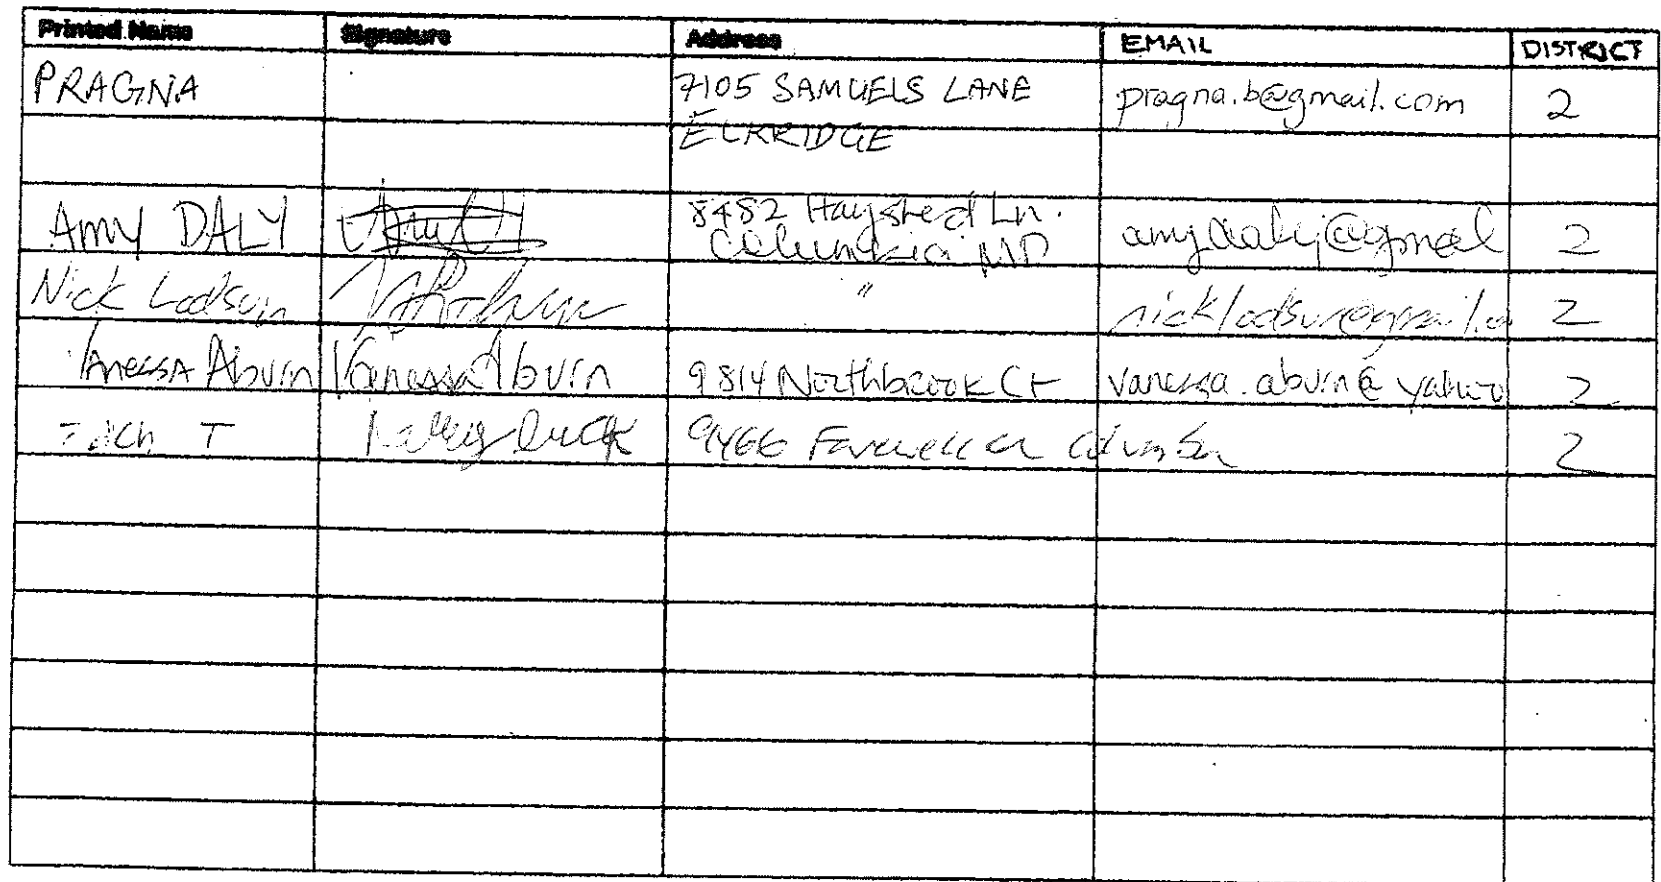 Printed Name Signature Address EMAIL DISTRICT
PRAGNA 7105 SAMUELS LANE pragna.b@gmail.com 2
ELKRIDGE
Amy DALY 8482 Haystead Ln. amydaly@gmail 2
Columbia, MD
Nick Lodsun " nicklodsun@gmail.co 2
Vanessa Aburn Vanessa Aburn 9814 Northbrook Ct vanessa.aburn@yahoo 2
Zach T 9466 Farewell Columbia 2